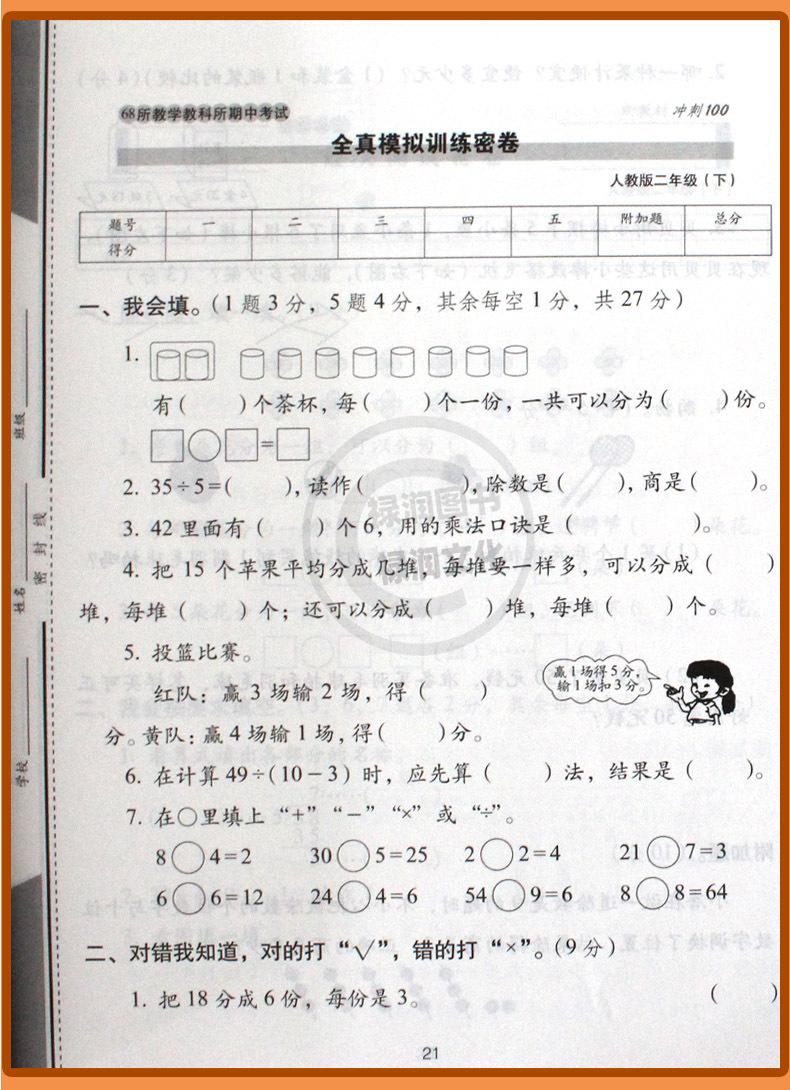 68所教学教科所期中考试
冲刺100
全真模拟训练密卷
人教版二年级(下)
题号 一 二 三 四 五 附加题 总分
得分
一、我会填。(1题3分,5题4分,其余每空1分,共27分)
1.
有( )个茶杯,每( )个一份,一共可以分为( )份。
□○□=□
2. 35÷5=( ),读作( ),除数是( ),商是( )。
3. 42里面有( )个6,用的乘法口诀是( )。
4. 把15个苹果平均分成几堆,每堆要一样多,可以分成( )
堆,每堆( )个;还可以分成( )堆,每堆( )个。
5. 投篮比赛。
赢1场得5分,
输1场扣3分。
红队:赢3场输2场,得( )
分。黄队:赢4场输1场,得( )分。
6. 在计算49÷(10-3)时,应先算( )法,结果是( )。
7. 在○里填上“+”“-”“×”或“÷”。
8○4=2 30○5=25 2○2=4 21○7=3
6○6=12 24○4=6 54○9=6 8○8=64
二、对错我知道,对的打“√”,错的打“×”。(9分)
1. 把18分成6份,每份是3。 ( )
21
班级
姓名
学校
密封线
绿润图书
绿润文化